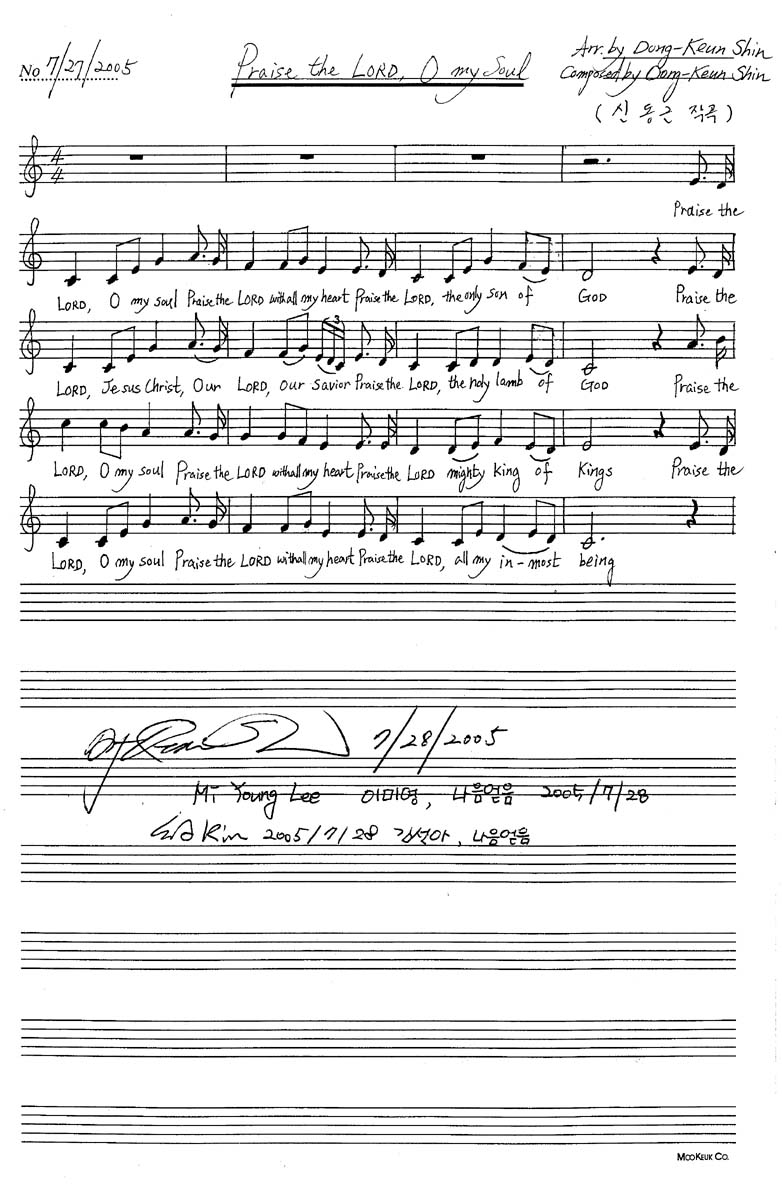 No 7/27/2005
Praise the LORD, O my Soul
Arr. by Dong-Keun Shin
Composed by Dong-Keun Shin
(신동근 작곡)
4
4
Praise the
LORD, O my soul Praise the LORD with all my heart Praise the LORD, the only son of GOD Praise the
3
LORD, Jesus Christ, Our LORD, our Savior Praise the LORD, the holy lamb of GOD Praise the
LORD, O my soul Praise the LORD with all my heart Praise the LORD mighty king of Kings Praise the
LORD, O my soul Praise the LORD with all my heart Praise the LORD, all my in-most being
7/28/2005
Mi Young Lee 이미영, 나음얻음 2005/7/28
Kim 2005/7/28 김설아, 나음얻음
MOOKEUK CO.